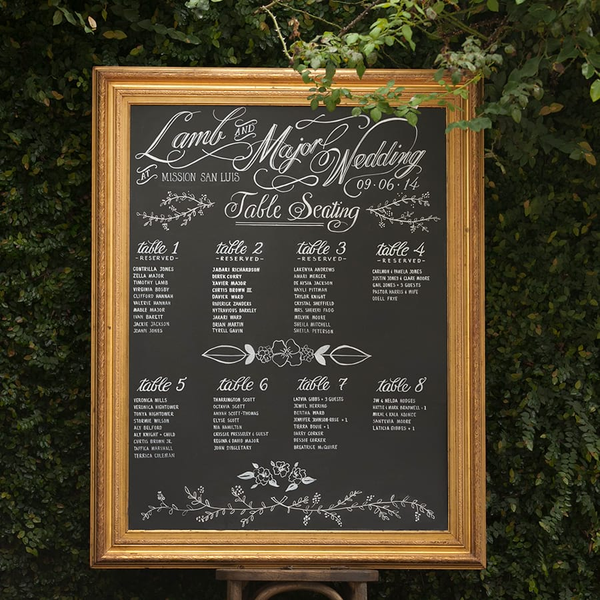 Lamb AND Major Wedding
AT MISSION SAN LUIS
09·06·14
Table Seating
table 1
-RESERVED-
CONTRILLA JONES
ZELLA MAJOR
TIMOTHY LAMB
VIRGINIA BUSBY
CLIFFORD HANNAH
VALERIE HANNAH
MABLE MAJOR
IVAN BARETT
JACKIE JACKSON
JOANN JONES
table 2
-RESERVED-
JABARI RICHARDSON
DEREK CURRY
XAVIER MAJOR
CURTIS BROWN III
DAVIER WARD
RODERICK ZANDERS
BARKLEY
JAKARI WARD
BRIAN MARTIN
TYRELL GAVIN
table 3
-RESERVED-
LAKENYA ANDREWS
AMARI MERCER
DE'AYSIA JACKSON
HAYLI PITTMAN
TAYLOR KNIGHT
CRYSTAL SHEFFIELD
MRS. SHAVERI FADG
MELVIN MOORE
SHEILA MITCHELL
SHEILA PETERSON
table 4
-RESERVED-
CARLMON & PAMELA JONES
JUSTIN JONES & CLAIR MOORE
GAIL JONES + 3 GUESTS
PASTOR HARRIS & WIFE
ODELL FRYE
table 5
VERONICA MILLS
VERONICA HIGHTOWER
TONYA HIGHTOWER
STORMIE WILSON
ALY BELFORD
ALY KNIGHT + CHILD
CURTIS BROWN JR.
TAMICA MARSHALL
TERRICA COLEMAN
table 6
THARRINGTON SCOTT
OCTAVIA SCOTT
ANYAH SCOTT-THOMAS
ELYSE SCOTT
NIA HAMILTON
CRISSIE PRESSLEY & GUEST
REGINA & DAVID MAJOR
JOHN SINGLETARY
table 7
LATVIA GIBBS + 3 GUESTS
JEWEL HERRING
BERTHA WARD
JENNIFER JOHNSON-ROSE + 1
TIERRA ROUSE + 1
HARRY CORKER
BESSIE CORKER
BREATRICE McGUIRE
table 8
JW & NELDA HODGES
HATTIE & MARK BRAXWELL + 1
MIKAL & KALA KOONCE
SANTEVIA MOORE
LATICIA GIBBS + 1